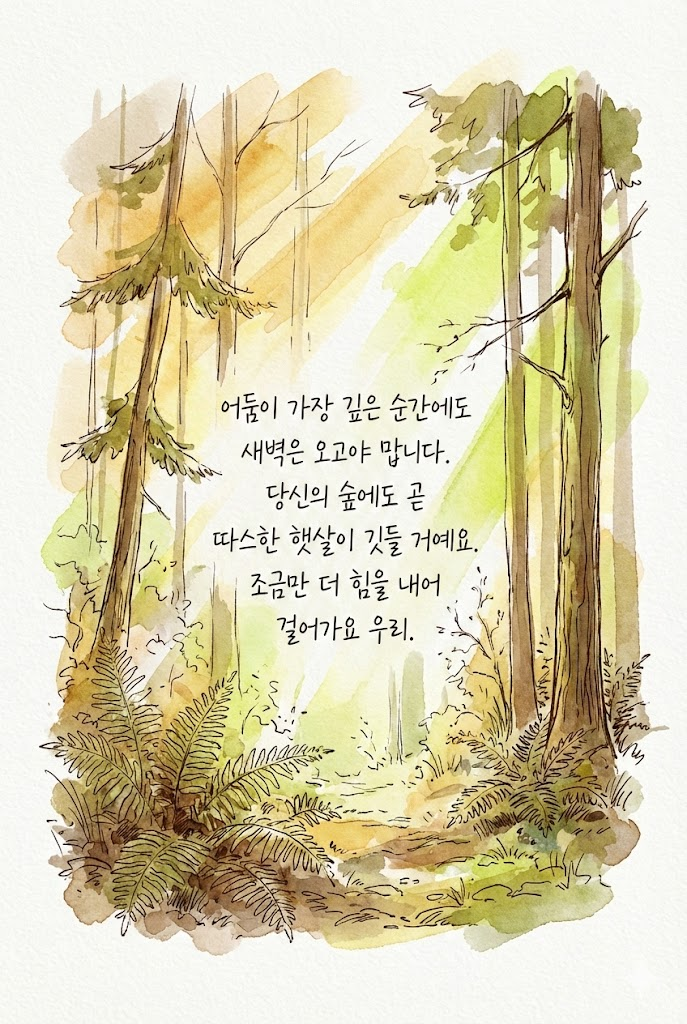 어둠이 가장 깊은 순간에도
새벽은 오고야 맙니다.
당신의 숲에도 곧
따스한 햇살이 깃들 거예요.
조금만 더 힘을 내어
걸어가요 우리.